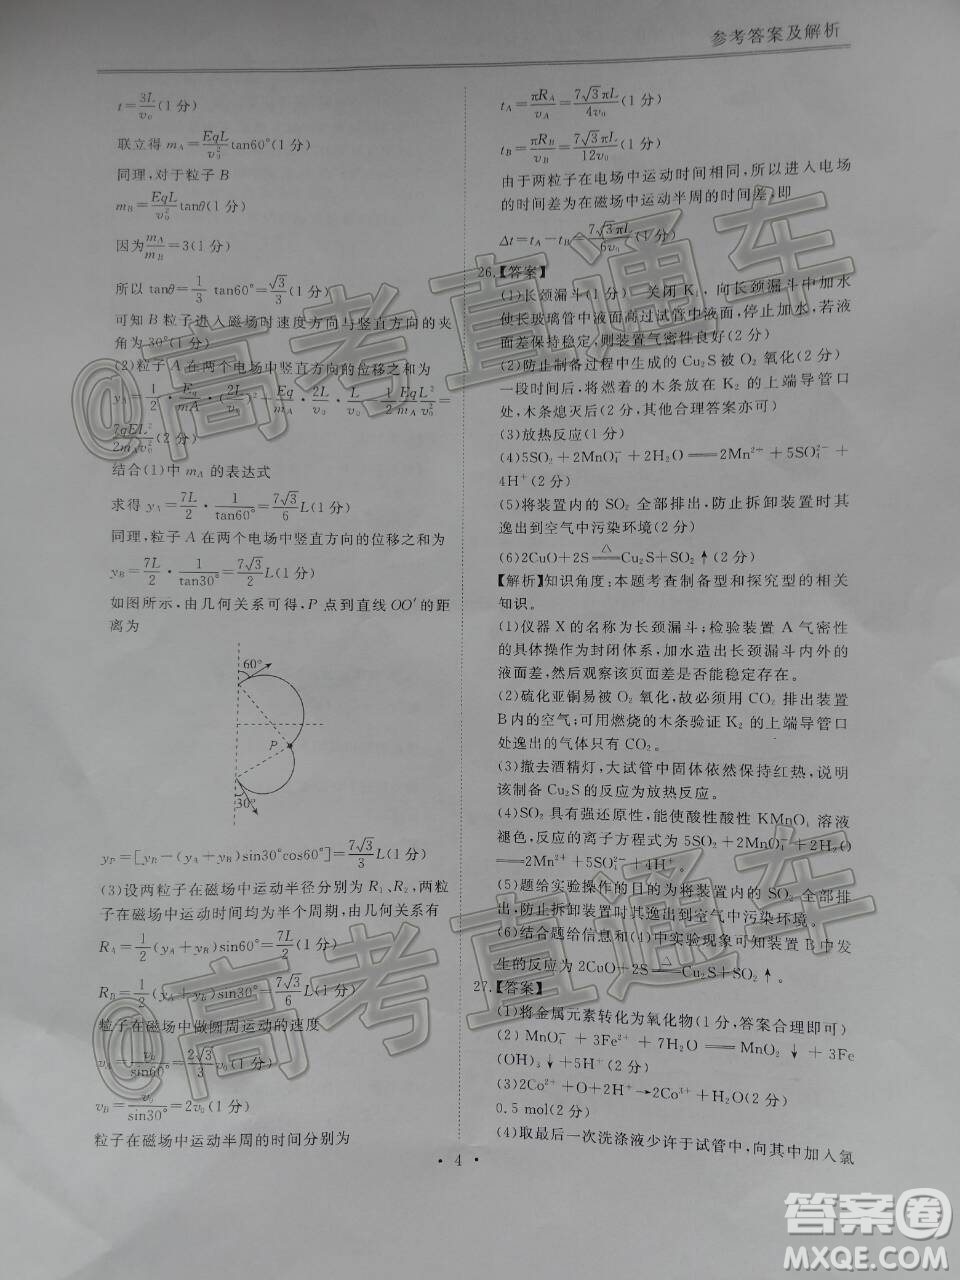 参考答案及解析
t=3L/v₀(1分)
联立得 m_A=EqL/v₀² tan60°(1分)
同理,对于粒子B
m_B=EqL/v₀² tanθ(1分)
因为m_A/m_B=3(1分)
所以 tanθ=1/3 tan60°=√3/3(1分)
可知B粒子进入磁场时速度方向与竖直方向的夹
角为30°(1分)
(2)粒子A在两个电场中竖直方向的位移之和为
7qEL²/2m_Av₀²(2分)
结合(1)中 m_A 的表达式
求得 y_A=7L/2·1/tan60°=7√3/6 L(1分)
同理,粒子A在两个电场中竖直方向的位移之和为
y_B=7L/2·1/tan30°=7√3/2 L(1分)
如图所示,由几何关系可得,P点到直线OO′的距
离为
60°
P
30°
y_P=[y_B-(y_A+y_B)sin30°cos60°]=7√3/3 L(1分)
(3)设两粒子在磁场中运动半径分别为R₁、R₂,两粒
子在磁场中运动时间均为半个周期,由几何关系有
R_A=1/2(y_A+y_B)sin60°=7L/2(1分)
R_B=1/2(y_A+y_B)sin30°=7√3/6 L(1分)
粒子在磁场中做圆周运动的速度
v_A=v₀/sin60°=2√3/3 v₀(1分)
v_B=v₀/sin30°=2v₀(1分)
粒子在磁场中运动半周的时间分别为
t_A=πR_A/v_A=7√3πL/4v₀(1分)
t_B=πR_B/v_B=7√3πL/12v₀(1分)
由于两粒子在电场中运动时间相同,所以进入电场
的时间差为在磁场中运动半周的时间差,即
Δt=t_A-t_B=7√3πL/6v₀(1分)
26.【答案】
(1)长颈漏斗(1分) 关闭K₁,向长颈漏斗中加水
使长玻璃管中液面高过试管中液面,停止加水,若液
面差保持稳定,则装置气密性良好(2分)
(2)防止制备过程中生成的Cu₂S被O₂氧化(2分)
一段时间后,将燃着的木条放在K₂的上端导管口
处,木条熄灭后(2分,其他合理答案亦可)
(3)放热反应(1分)
(4)5SO₂+2MnO₄⁻+2H₂O══2Mn²⁺+5SO₄²⁻+
4H⁺(2分)
(5)将装置内的SO₂全部排出,防止拆卸装置时其
逸出到空气中污染环境(2分)
(6)2CuO+2S══△Cu₂S+SO₂↑(2分)
【解析】知识角度:本题考查制备型和探究型的相关
知识。
(1)仪器X的名称为长颈漏斗;检验装置A气密性
的具体操作为封闭体系,加水造出长颈漏斗内外的
液面差,然后观察该页面差是否能稳定存在。
(2)硫化亚铜易被O₂氧化,故必须用CO₂排出装置
B内的空气;可用燃烧的木条验证K₂的上端导管口
处逸出的气体只有CO₂。
(3)撤去酒精灯,大试管中固体依然保持红热,说明
该制备Cu₂S的反应为放热反应。
(4)SO₂具有强还原性,能使酸性酸性KMnO₄溶液
褪色,反应的离子方程式为5SO₂+2MnO₄⁻+2H₂O
══2Mn²⁺+5SO₄²⁻+4H⁺。
(5)题给实验操作的目的为将装置内的SO₂全部排
出,防止拆卸装置时其逸出到空气中污染环境。
(6)结合题给信息和(4)中实验现象可知装置B中发
生的反应为2CuO+2S══△Cu₂S+SO₂↑。
27.【答案】
(1)将金属元素转化为氧化物(1分,答案合理即可)
(2)MnO₄⁻+3Fe²⁺+7H₂O══MnO₂↓+3Fe
(OH)₃↓+5H⁺(2分)
(3)2Co²⁺+O+2H⁺→2Co³⁺+H₂O(2分)
0.5 mol(2分)
(4)取最后一次洗涤液少许于试管中,向其中加入氯
·4·
@高考直通车
@高考直通车
@高考直通车
答案卷
MXQE.COM